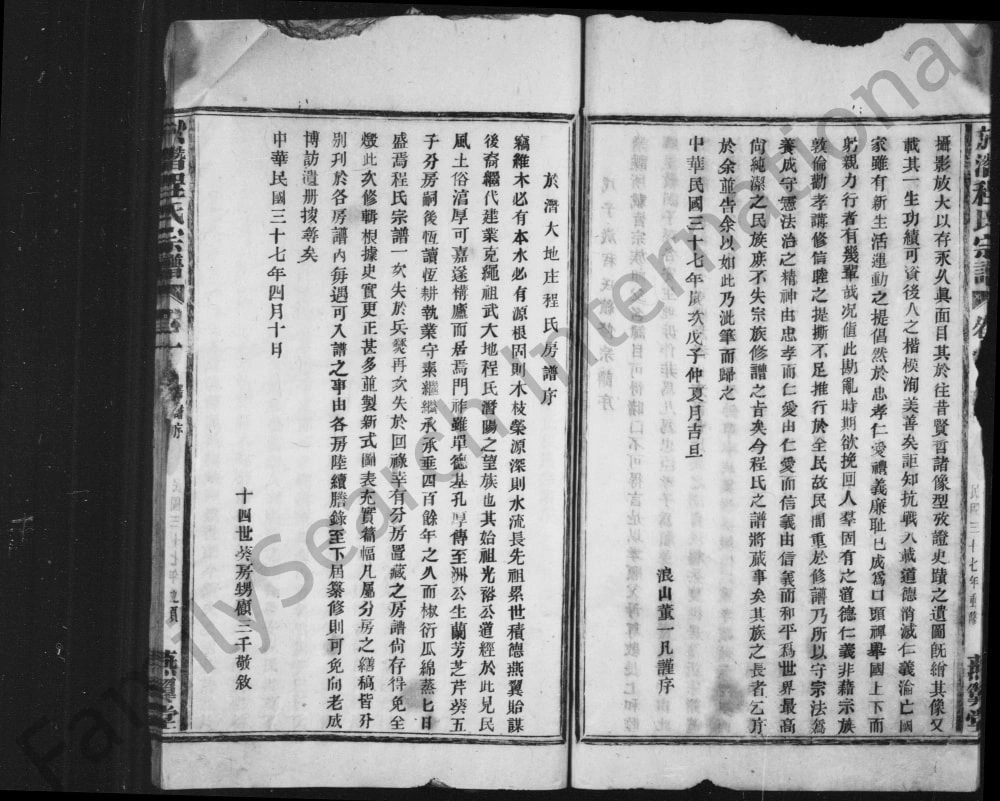 攝影放大以存永久眞面目其於往昔賢哲諸像型攷證史蹟之遺圖旣繪其像又
載其一生功績可資後人之楷模洵美善矣詎知抗戰八載道德消滅仁義淪亡國
家雖有新生活運動之提倡然於忠孝仁愛禮義廉耻已成爲口頭禪舉國上下而
躬親力行者有幾輩哉况值此勘亂時期欲挽回人羣固有之道德仁義非藉宗族
敦倫勸孝講修信睦之提撕不足推行於全民故民間重於修譜乃所以守宗法爲
養成守憲法治之精神由忠孝而仁愛由仁愛而信義由信義而和平爲世界最高
尙純潔之民族庶不失宗族修譜之旨矣今程氏之譜將蕆事矣其族之長者乞序
於余並告余以如此乃泚筆而歸之
中華民國三十七年歲次戊子仲夏月吉旦
浪山董一凡謹序
於潛程氏宗譜
燕翼堂
於潛大地庄程氏房譜序
竊維木必有本水必有源根固則木枝榮源深則水流長先祖累世積德燕翼貽謀
後裔繼代建業克繩祖武大地程氏潛陽之望族也其始祖光裕公道經於此見民
風土俗湻厚可嘉遂構廬而居焉門祚雖單德基孔厚傳至洲公生蘭芳芝芹葵五
子分房嗣後恆讀恆耕執業守素繼繼承承垂四百餘年之久而椒衍瓜綿蒸七日
盛焉程氏宗譜一次失於兵燹再次失於回祿幸有分房置藏之房譜尙存得免全
燬此次修輯根據史實更正甚多並製新式圖表充實篇幅凡屬分房之繕稿皆分
別刊於各房譜內每遇可入譜之事由各房陸續謄錄至下屆纂修則可免向老成
博訪遺册搜尋矣
中華民國三十七年四月十日
十四世葵房甥顧三千敬敘
於潛程氏宗譜
卷一
譜序
民國三十七年重修
燕翼堂
FamilySearch International